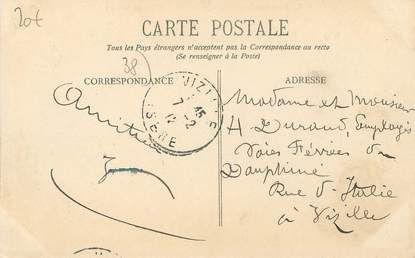 20f
CARTE POSTALE
Tous les Pays étrangers n'acceptent pas la Correspondance au recto
(Se renseigner à la Poste)
38)
CORRESPONDANCE
ADRESSE
VIZILLE
7-2
12
ISÈRE
Madame et Monsieur
H Durand, Employé
Voies Ferrées du
Dauphiné
Rue d'Italie
à Vizille